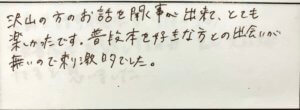 沢山の方のお話を聞く事が出来て、とても
楽しかったです。普段本を好きな方との出会いが
無いので刺激的でした。